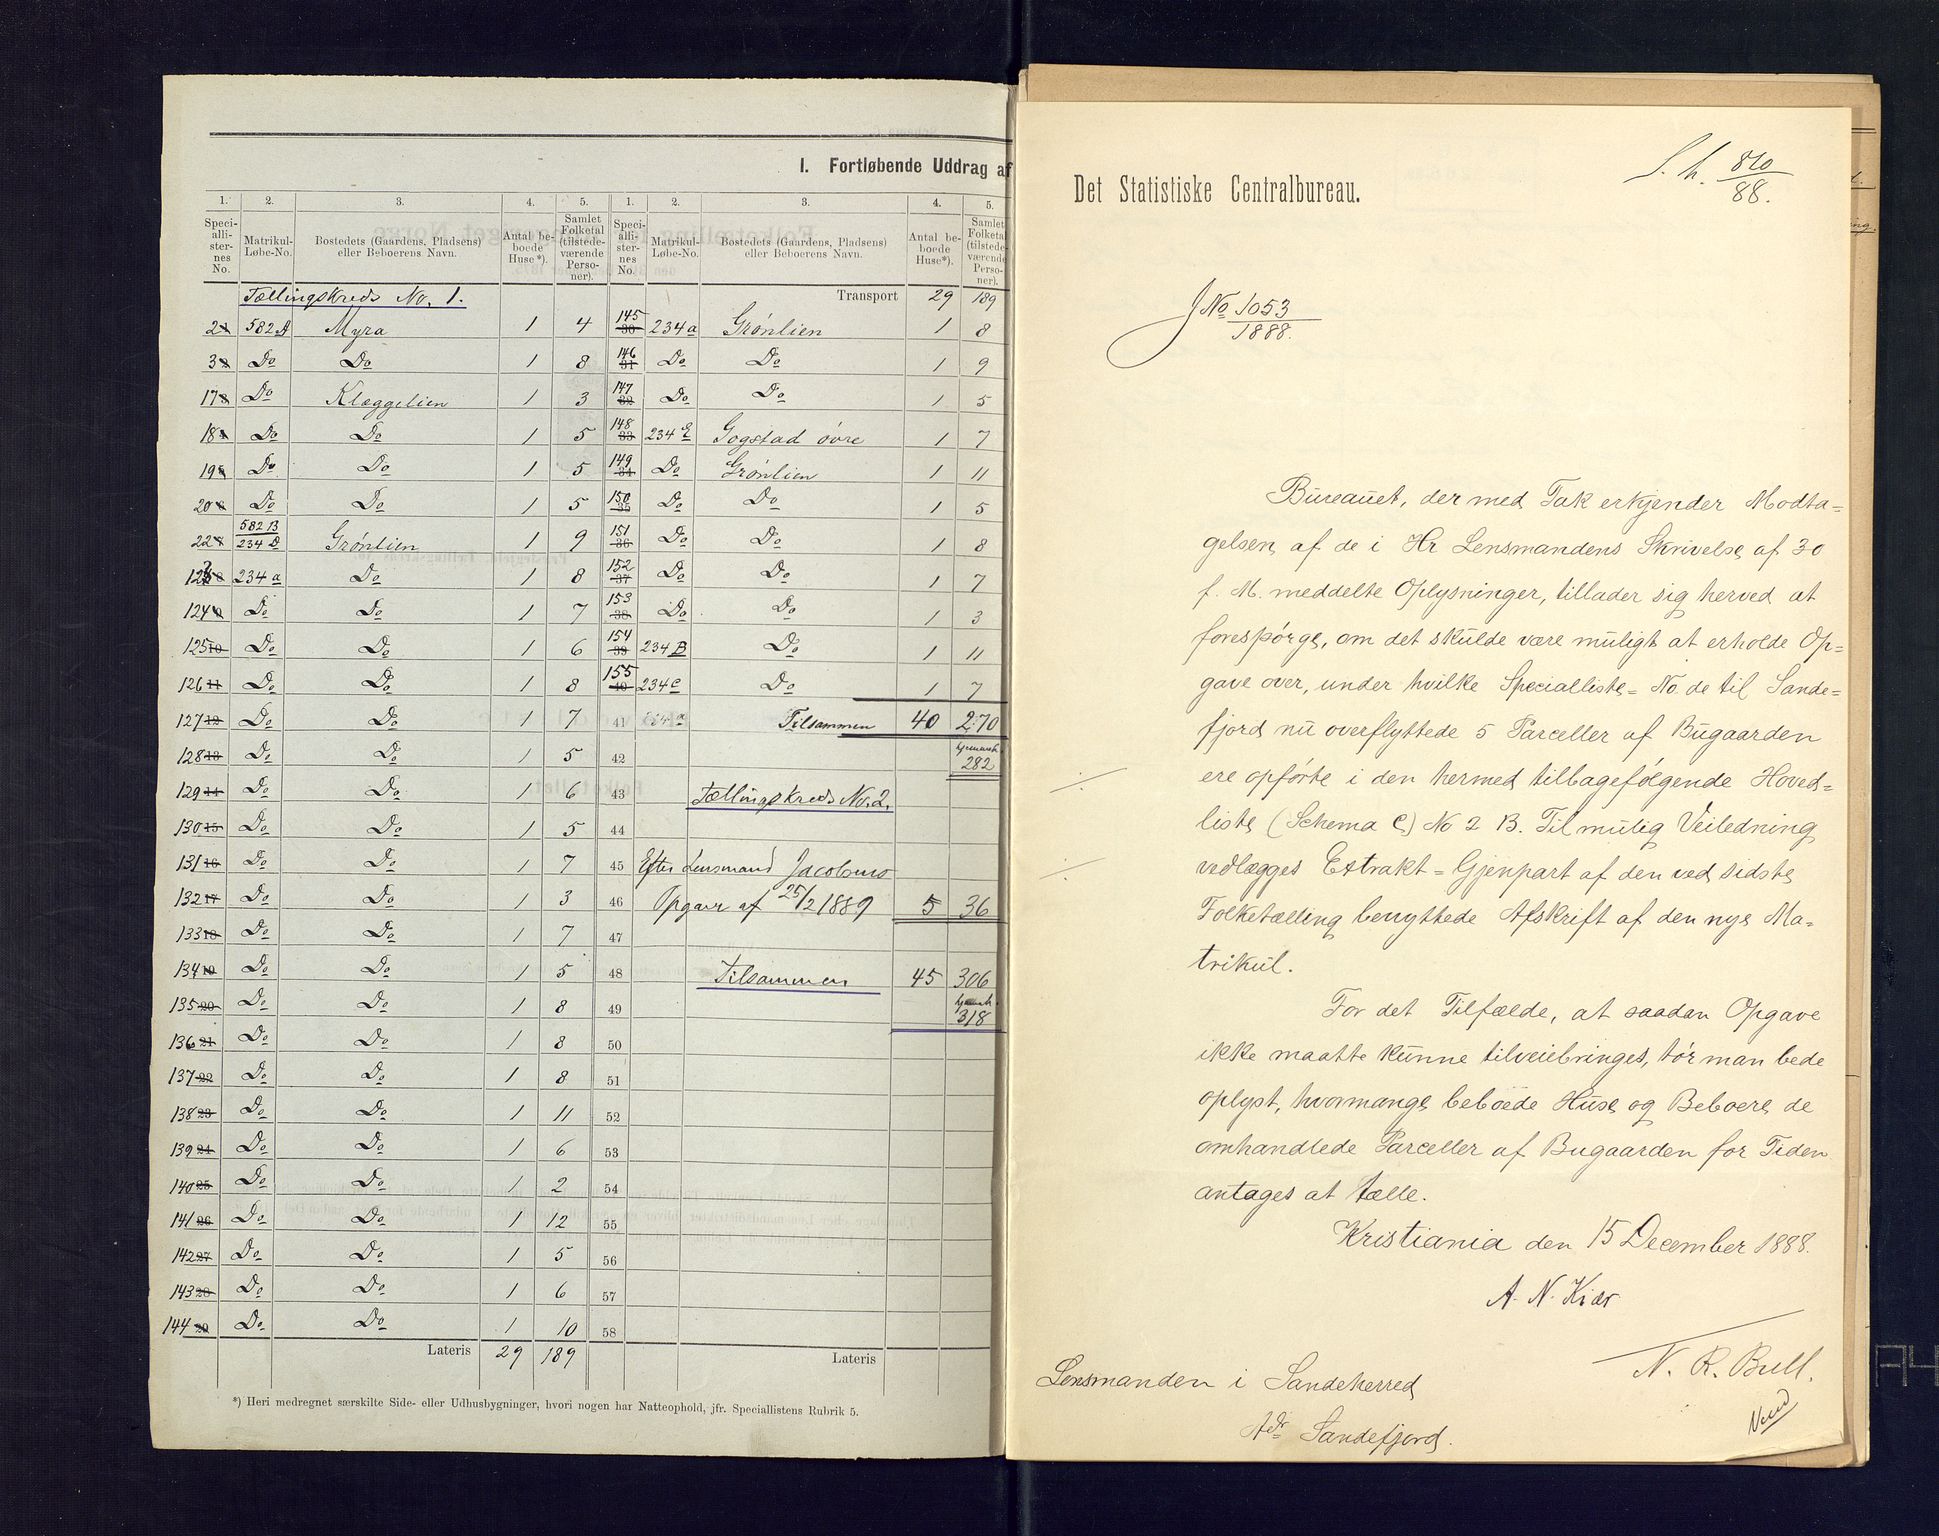 I. Fortløbende Uddrag af
1. 2. 3. 4. 5. 1. 2. 3. 4. 5.
Speciallisternes No. Matrikul-Løbe-No. Bostedets (Gaardens, Pladsens) eller Beboerens Navn. Antal beboede Huse*). Samlet Folketal (tilstedeværende Personer). Speciallisternes No. Matrikul-Løbe-No. Bostedets (Gaardens, Pladsens) eller Beboerens Navn. Antal beboede Huse*). Samlet Folketal (tilstedeværende Personer).
Tællingskreds No. 1. Transport 29 189
2 582 A Myra 1 4 145 30 234 a Grønlien 1 8
3 Do Do 1 8 146 31 Do Do 1 9
17 Do Klæggelien 1 3 147 32 Do Do 1 5
18 Do Do 1 5 148 33 234 E Gogstad øvre 1 7
19 Do Do 1 5 149 34 Do Grønlien 1 11
20 Do Do 1 5 150 35 Do Do 1 5
22 582 B 234 D Grønlien 1 9 151 36 Do Do 1 8
123 234 a Do 1 8 152 37 Do Do 1 7
124 Do Do 1 7 153 38 Do Do 1 3
125 10 Do Do 1 6 154 39 234 B Do 1 11
126 11 Do Do 1 8 155 40 234 C Do 1 7
127 12 Do Do 1 7 41 Tilsammen 40 270
128 13 Do Do 1 5 42 282
129 14 Do Do 1 6 43 Tællingskreds No. 2.
130 15 Do Do 1 5 44
131 16 Do Do 1 7 45 Efter Lensmand Jacobsens
132 17 Do Do 1 3 46 Opgave af 25/2 1889 5 36
133 18 Do Do 1 7 47
134 19 Do Do 1 5 48 Tilsammen 45 306
135 20 Do Do 1 8 49 318
136 21 Do Do 1 8 50
137 22 Do Do 1 8 51
138 23 Do Do 1 11 52
139 24 Do Do 1 6 53
140 25 Do Do 1 2 54
141 26 Do Do 1 12 55
142 27 Do Do 1 5 56
143 28 Do Do 1 6 57
144 29 Do Do 1 10 58
Lateris 29 189 Lateris
*) Heri medregnet særskilte Side- eller Udhusbygninger, hvori nogen har Natteophold, jfr. Speciallistens Rubrik 5.
Det Statistiske Centralbureau.
S. h. 810/88.
J No 1053/1888.
Bureauet, der med Tak erkjender Modta-
gelsen af de i Hr Lensmandens Skrivelse af 30
f. M. meddelte Oplysninger, tillader sig herved at
forespørge, om det skulde være muligt at erholde Op-
gave over, under hvilke Specialliste-No. de til Sande-
fjord nu overflyttede 5 Parceller af Bugaarden
ere opførte i den hermed tilbagefølgende Hoved-
liste (Schema C) No 2 B. Til mulig Veiledning
vedlægges Extrakt-Gjenpart af den ved sidste
Folketælling benyttede Afskrift af den nye Ma-
trikul.
For det Tilfælde, at saadan Opgave
ikke maatte kunne tilveiebringes, tør man bede
oplyst, hvormange beboede Huse og Beboere de
omhandlede Parceller af Bugaarden for Tiden
antages at tælle.
Kristiania den 15 December 1888.
A. N. Kiær
N. R. Bull.
Lensmanden i Sandeherred
Adr Sandefjord.